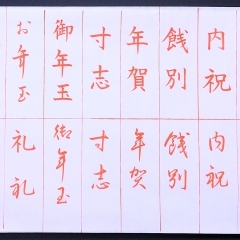 内祝
餞別
年賀
寸志
御年玉
お年玉
内祝
餞別
年賀
寸志
御年玉
礼礼